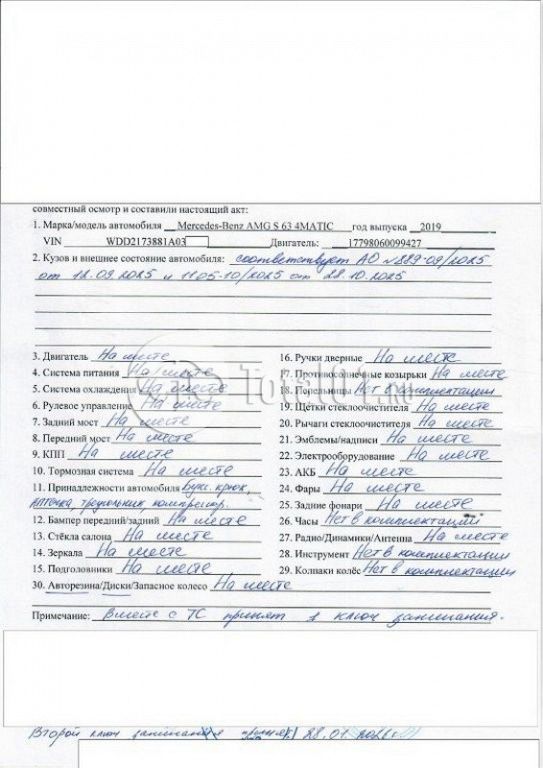 совместный осмотр и составили настоящий акт:
1. Марка/модель автомобиля Mercedes-Benz AMG S 63 4MATIC год выпуска 2019
VIN WDD2173881A03 Двигатель: 17798060099427
2. Кузов и внешнее состояние автомобиля: соответствует АО №889-09/2025
от 12.09.2025 и 1105-10/2025 от 28.10.2025
3. Двигатель На месте
4. Система питания На месте
5. Система охлаждения На месте
6. Рулевое управление На месте
7. Задний мост На месте
8. Передний мост На месте
9. КПП На месте
10. Тормозная система На месте
11. Принадлежности автомобиля Букс. крюк,
аптечка, треугольник, компрессор.
12. Бампер передний/задний На месте
13. Стёкла салона На месте
14. Зеркала На месте
15. Подголовники На месте
16. Ручки дверные На месте
17. Противосолнечные козырьки На месте
18. Пепельницы Нет в комплектации
19. Щётки стеклоочистителя На месте
20. Рычаги стеклоочистителя На месте
21. Эмблемы/надписи На месте
22. Электрооборудование На месте
23. АКБ На месте
24. Фары На месте
25. Задние фонари На месте
26. Часы Нет в комплектации
27. Радио/Динамики/Антенна На месте
28. Инструмент Нет в комплектации
29. Колпаки колёс Нет в комплектации
30. Авторезина/Диски/Запасное колесо На месте
Примечание: Вместе с ТС принят 1 ключ зажигания.
Второй ключ зажигания принял 28.01.2026